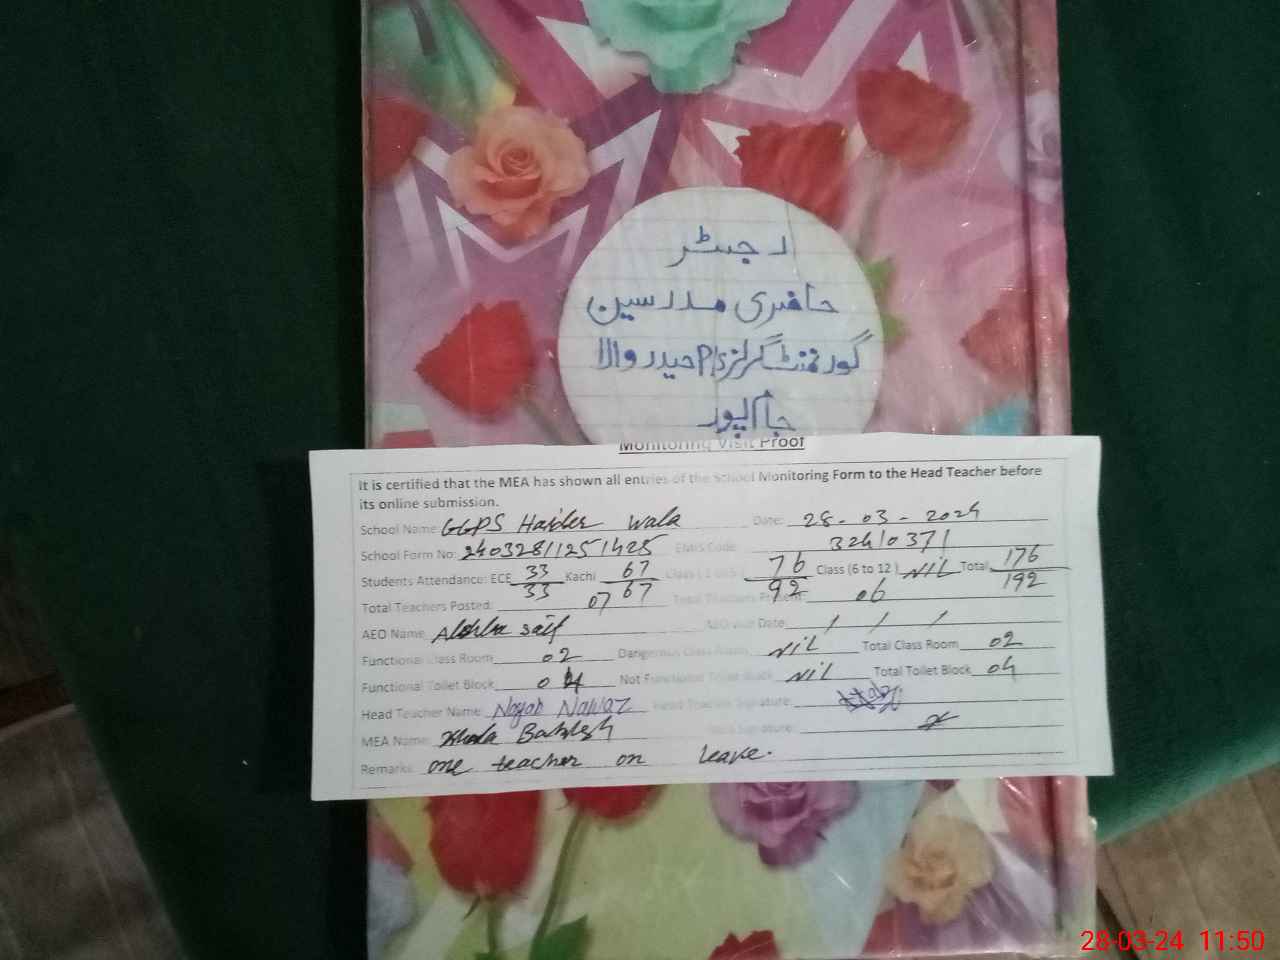 رجسٹر
حاضری مدرسین
گورنمنٹ گرلز P/S حیدر والا
جام پور
Monitoring Visit Proof
It is certified that the MEA has shown all entries of the School Monitoring Form to the Head Teacher before
its online submission.
School Name: GGPS Haider Wala Date: 28-03-2024
School Form No: 24032811251425 EMIS Code 32410371
Students Attendance: ECE 33/33 Kachi 67/67 Class (1 to 5) 76/92 Class (6 to 12) NIL Total 176/192
Total Teachers Posted: 07 Total Teachers Present: 06
AEO Name: Saif AEO Visit Date / / /
Functional Class Room 02 Dangerous Class Room NIL Total Class Room 02
Functional Toilet Block 04 Not Functional Toilet Block NIL Total Toilet Block 04
Head Teacher Name: Nawaz Head Teacher Signature:
MEA Name: Bakhsh MEA Signature:
Remarks: one teacher on leave.
28-03-24 11:50